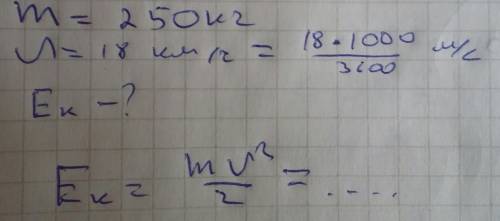 m = 250кг
υ = 18 км/г = 18 • 1000 / 3600 м/с
Eк - ?
Eк = mυ² / 2 = ....